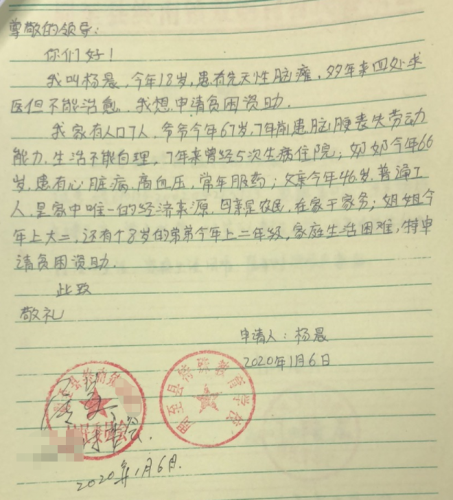 尊敬的领导:
你们好!
我叫杨晨,今年18岁,患有先天性脑瘫,多年来四处求
医但不能治愈。我想申请贫困资助.
我家有人口7人,爷爷今年67岁,7年前患脑梗丧失劳动
能力.生活不能自理,7年来曾经5次生病住院;奶奶今年66
岁,患有心脏病,高血压,常年服药;父亲今年46岁,普通工
人,是家中唯一的经济来源,母亲是农民,在家干家务;姐姐今
年上大二,还有个8岁的弟弟今年上二年级,家庭生活困难,特申
请贫困资助.
此致
敬礼
申请人:杨晨
2020年1月6日
周至县特殊教育学校
2020年1月6日.